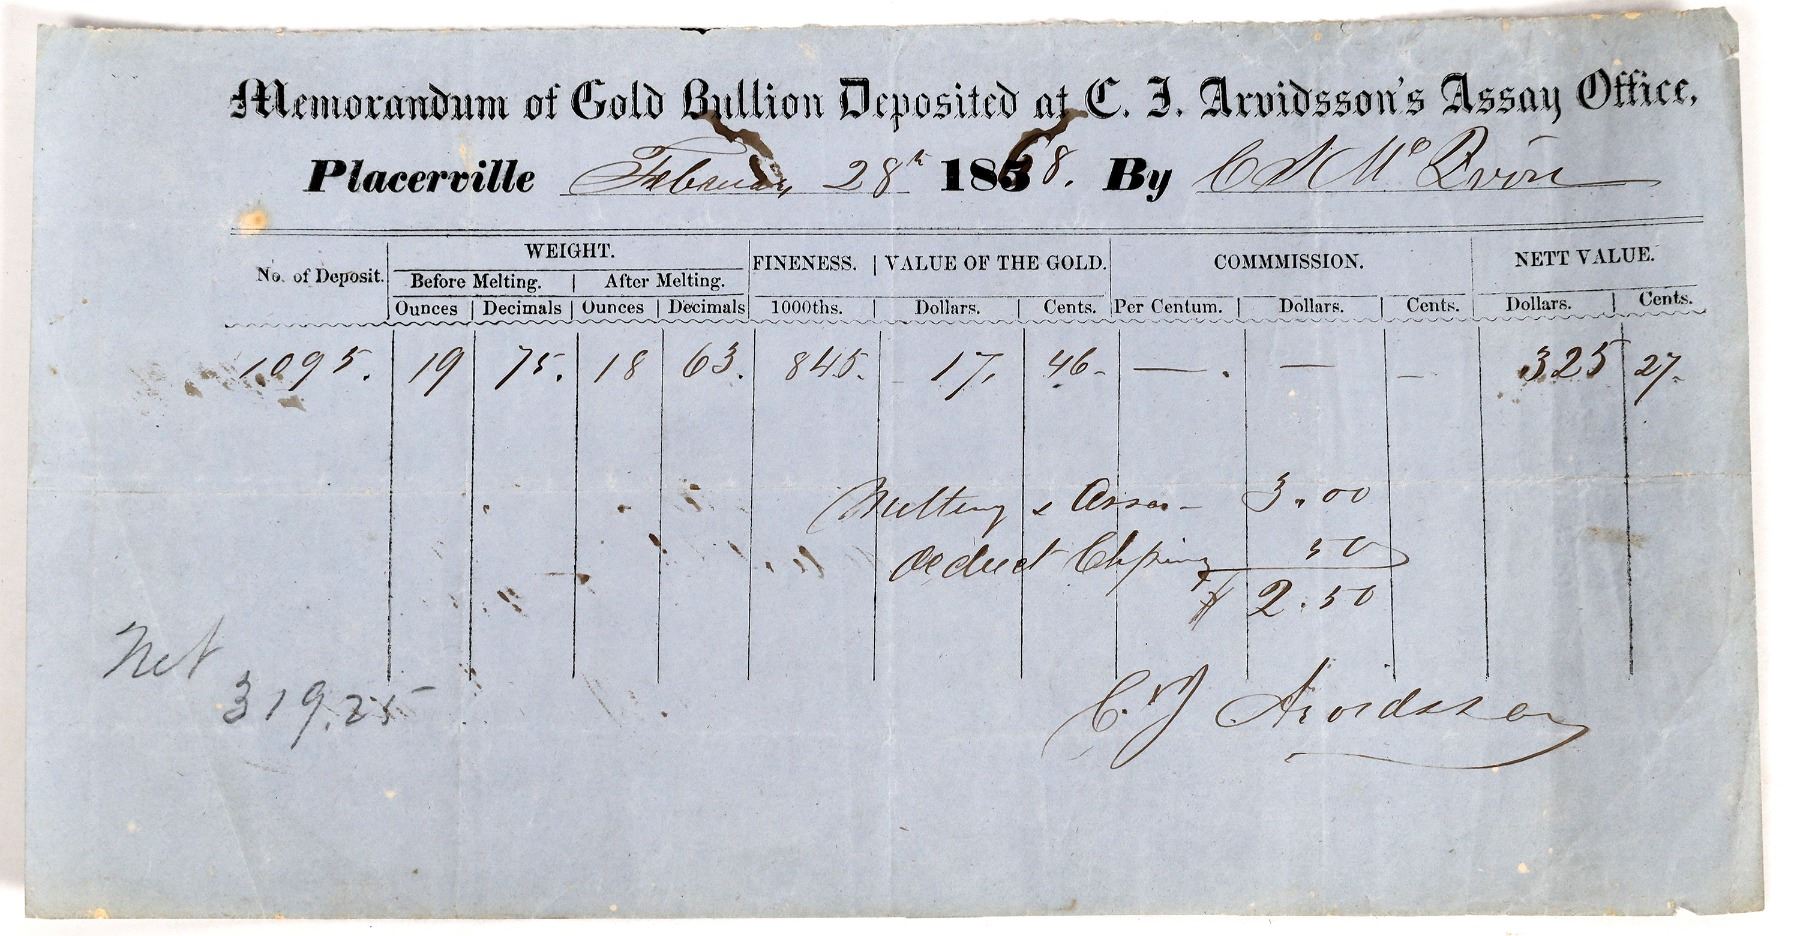 Memorandum of Gold Bullion Deposited at C. J. Arvidsson's Assay Office,
Placerville February 28th 1868. By C
No. of Deposit. WEIGHT. FINENESS. VALUE OF THE GOLD. COMMMISSION. NETT VALUE.
Before Melting. After Melting.
Ounces Decimals Ounces Decimals 1000ths. Dollars. Cents. Per Centum. Dollars. Cents. Dollars. Cents.
1095. 19 75. 18 63. 845. 17, 46- — . — — 325 27-
Melting & Assa- 3.00
deduct Chipping 50
$ 2.50
Net
319.25
C. J Arvidsson